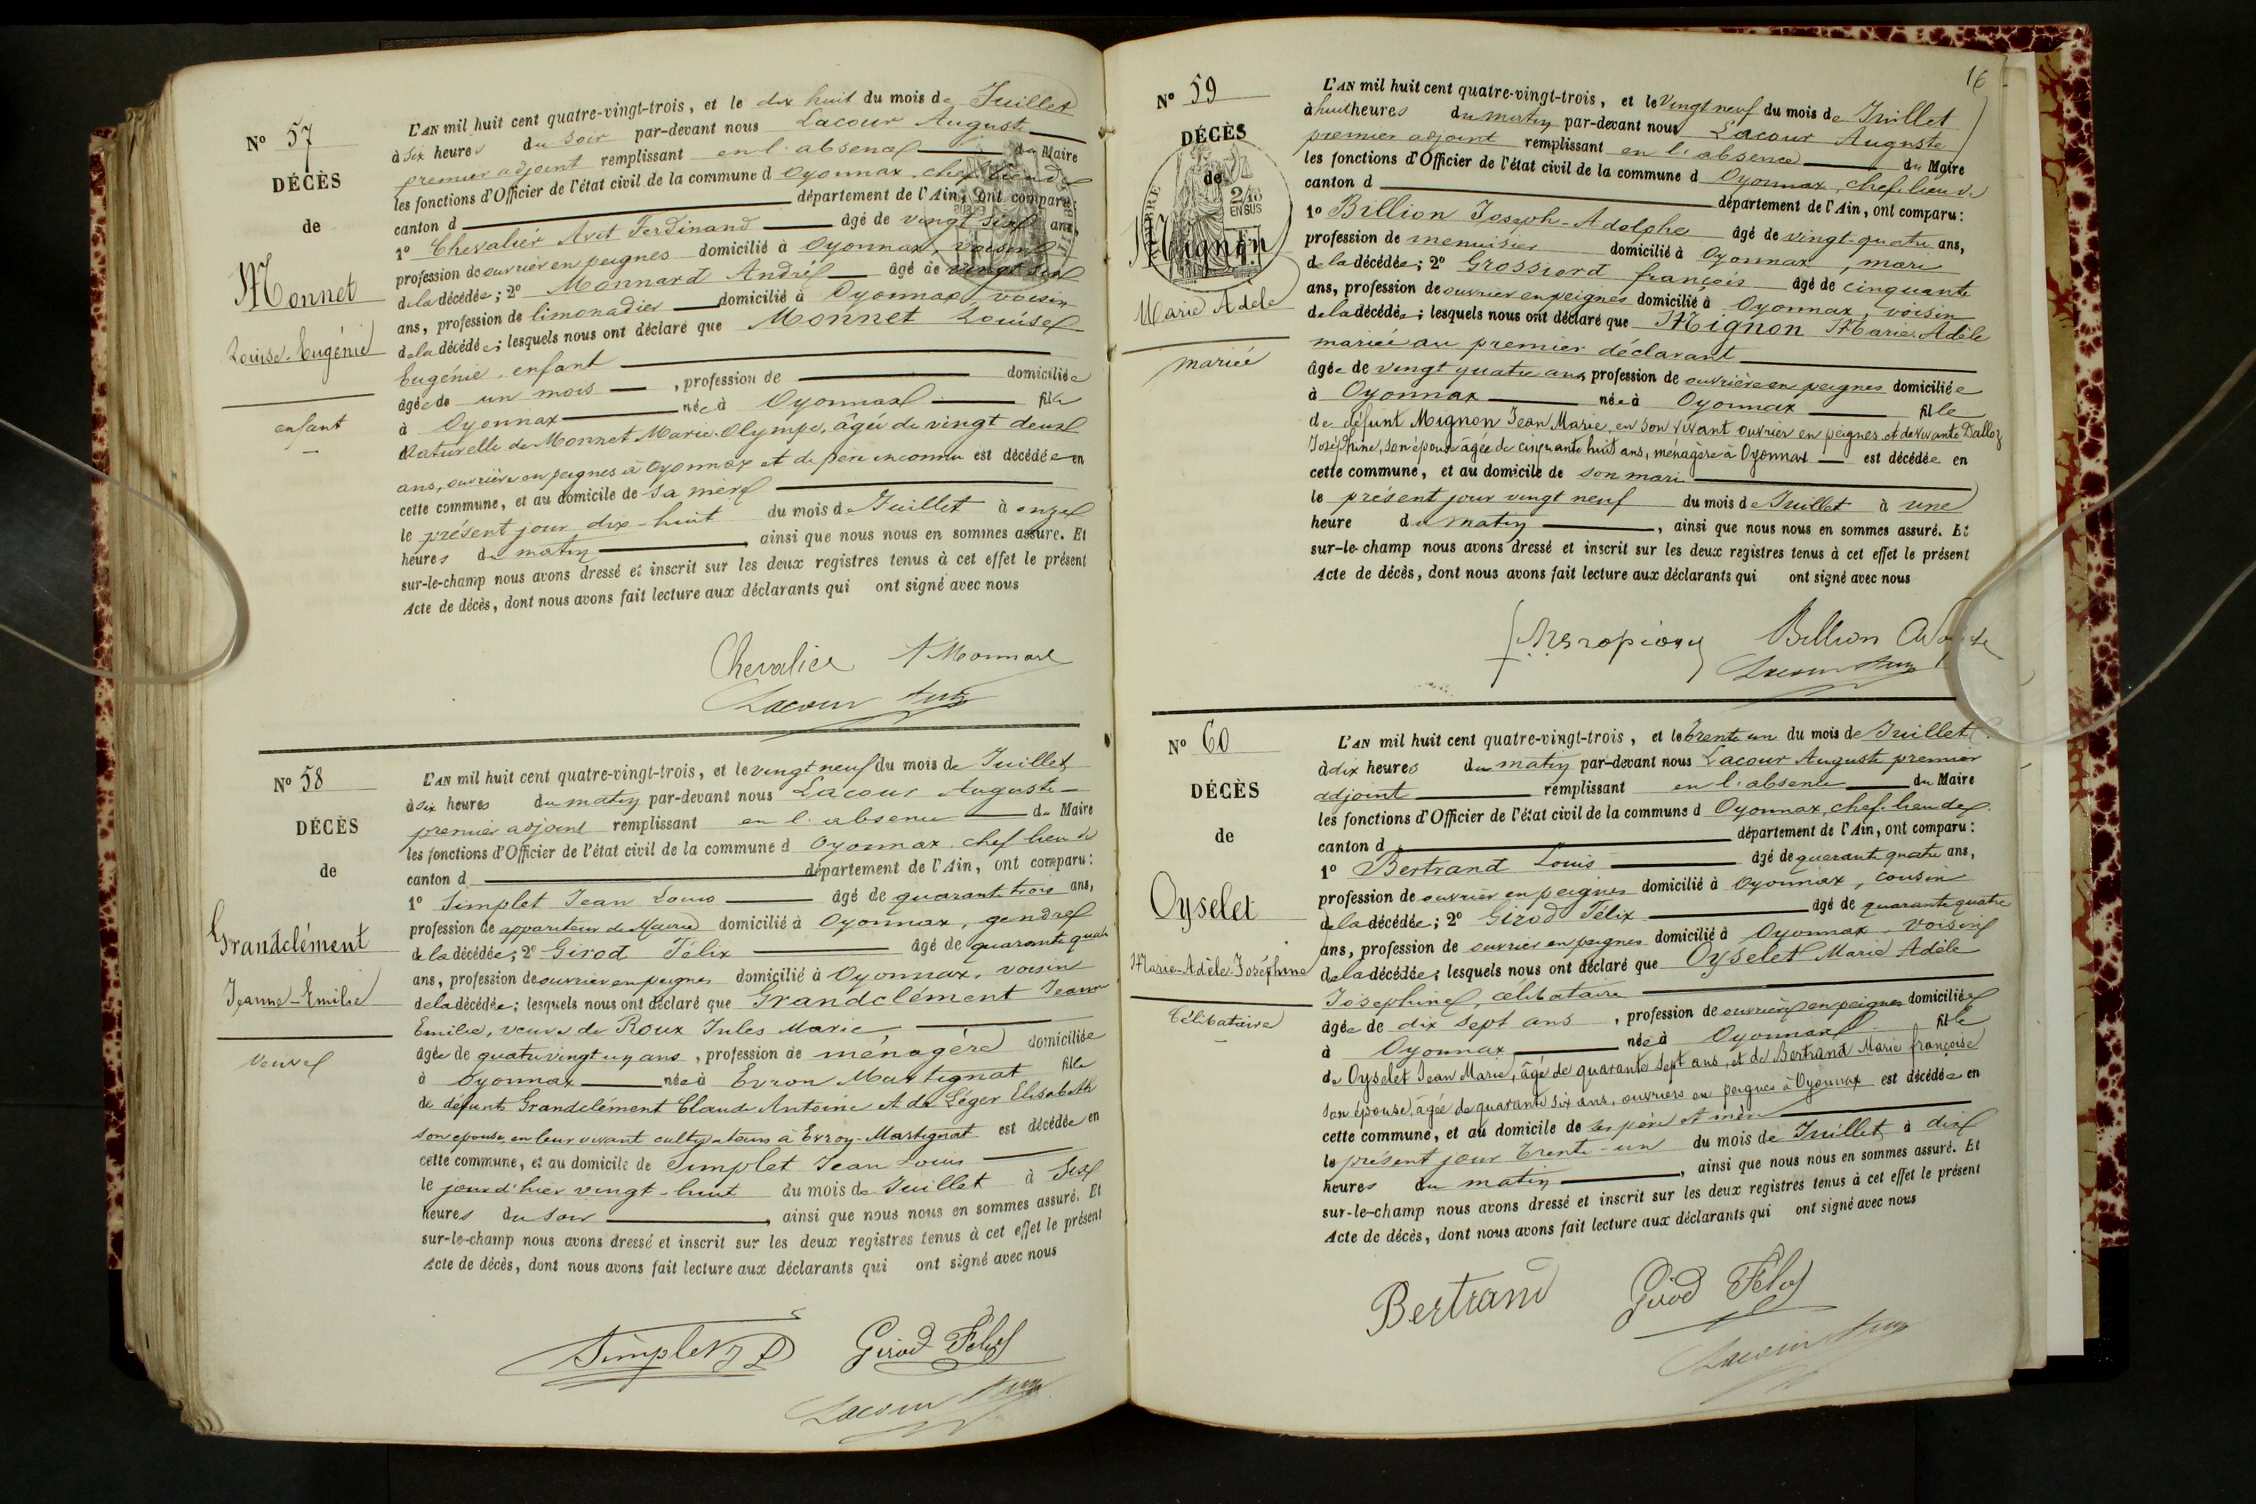 N° 57
DÉCÈS
de
Monnet
Louise-Eugénie
enfant
L'AN mil huit cent quatre-vingt-trois, et le dix huit du mois de Juillet
à six heures du soir par-devant nous Lacour Auguste
premier adjoint remplissant en l'absence du Maire
les fonctions d'Officier de l'état civil de la commune d Oyonnax, chef lieu de
canton d département de l'Ain, ont comparu:
1° Chevalier Avit Ferdinand âgé de vingt six ans,
profession de ouvrier en peignes domicilié à Oyonnax, voisin
de la décédée; 2° Monnard André âgé de vingt six
ans, profession de limonadier domicilié à Oyonnax, voisin
de la décédée; lesquels nous ont déclaré que Monnet Louise
Eugénie, enfant
âgée de un mois, profession de domiciliée
à Oyonnax née à Oyonnax fille
Naturelle de Monnet Marie-Olympe, âgée de vingt deux
ans, ouvrière en peignes à Oyonnax et de père inconnu est décédée en
cette commune, et au domicile de sa mère
le présent jour dix-huit du mois de Juillet à onze
heures du matin, ainsi que nous nous en sommes assuré. Et
sur-le-champ nous avons dressé et inscrit sur les deux registres tenus à cet effet le présent
Acte de décès, dont nous avons fait lecture aux déclarants qui ont signé avec nous
Chevalier A Monnard
Lacour Aug
N° 58
DÉCÈS
de
Grandclément
Jeanne-Emilie
Veuve
L'AN mil huit cent quatre-vingt-trois, et le vingt neuf du mois de Juillet
à six heures du matin par-devant nous Lacour Auguste
premier adjoint remplissant en l'absence du Maire
les fonctions d'Officier de l'état civil de la commune d Oyonnax, chef lieu de
canton d département de l'Ain, ont comparu:
1° Simplet Jean Louis âgé de quarante trois ans,
profession de appariteur de Mairie domicilié à Oyonnax, gendre
de la décédée; 2° Girod Félix âgé de quarante quatre
ans, profession de ouvrier en peignes domicilié à Oyonnax, voisin
de la décédée; lesquels nous ont déclaré que Grandclément Jeanne
Emilie, veuve de Roux Jules Marie
âgée de quatre vingt un ans, profession de ménagère domiciliée
à Oyonnax née à Evron Martignat fille
de défunts Grandclément Claude Antoine et de Léger Elisabeth
son épouse, en leur vivant cultivateurs à Evron-Martignat est décédée en
cette commune, et au domicile de Simplet Jean Louis
le jour d'hier vingt-huit du mois de Juillet à six
heures du soir, ainsi que nous nous en sommes assuré. Et
sur-le-champ nous avons dressé et inscrit sur les deux registres tenus à cet effet le présent
Acte de décès, dont nous avons fait lecture aux déclarants qui ont signé avec nous
Simplet Girod Félix
Lacour Aug
16
N° 59
DÉCÈS
de
Mignon
Marie Adèle
mariée
L'AN mil huit cent quatre-vingt-trois, et le Vingt neuf du mois de Juillet
à huit heures du matin par-devant nous Lacour Auguste
premier adjoint remplissant en l'absence du Maire
les fonctions d'Officier de l'état civil de la commune d Oyonnax, chef-lieu de
canton d département de l'Ain, ont comparu:
1° Billion Joseph-Adolphe âgé de vingt-quatre ans,
profession de menuisier domicilié à Oyonnax, mari
de la décédée; 2° Grossiord françois âgé de cinquante
ans, profession de ouvrier en peignes domicilié à Oyonnax, voisin
de la décédée; lesquels nous ont déclaré que Mignon Marie Adèle
mariée au premier déclarant
âgée de vingt quatre ans, profession de ouvrière en peignes domiciliée
à Oyonnax née à Oyonnax fille
de défunt Mignon Jean Marie, en son vivant ouvrier en peignes et de vivante Dalloz
Joséphine, son épouse âgée de cinquante huit ans, ménagère à Oyonnax est décédée en
cette commune, et au domicile de son mari
le présent jour vingt neuf du mois de Juillet à une
heure du matin, ainsi que nous nous en sommes assuré. Et
sur-le-champ nous avons dressé et inscrit sur les deux registres tenus à cet effet le présent
Acte de décès, dont nous avons fait lecture aux déclarants qui ont signé avec nous
Billion
Lacour Aug
N° 60
DÉCÈS
de
Oyselet
Marie-Adèle-Joséphine
Célibataire
L'AN mil huit cent quatre-vingt-trois, et le trente un du mois de Juillet
à dix heures du matin par-devant nous Lacour Auguste premier
adjoint remplissant en l'absence du Maire
les fonctions d'Officier de l'état civil de la commune d Oyonnax, chef-lieu de
canton d département de l'Ain, ont comparu:
1° Bertrand Louis âgé de quarante quatre ans,
profession de ouvrier en peignes domicilié à Oyonnax, cousin
de la décédée; 2° Girod Félix âgé de quarante quatre
ans, profession de ouvrier en peignes domicilié à Oyonnax, voisin
de la décédée; lesquels nous ont déclaré que Oyselet Marie Adèle
Josephine, célibataire
âgée de dix sept ans, profession de ouvrière en peignes domiciliée
à Oyonnax née à Oyonnax fille
de Oyselet Jean Marie, âgé de quarante sept ans, et de Bertrand Marie françoise
son épouse, âgée de quarante six ans, ouvriers en peignes à Oyonnax est décédée en
cette commune, et au domicile de ses père et mère
le présent jour trente-un du mois de Juillet à dix
heures du matin, ainsi que nous nous en sommes assuré. Et
sur-le-champ nous avons dressé et inscrit sur les deux registres tenus à cet effet le présent
Acte de décès, dont nous avons fait lecture aux déclarants qui ont signé avec nous
Bertrand Girod Félix
Lacour Aug